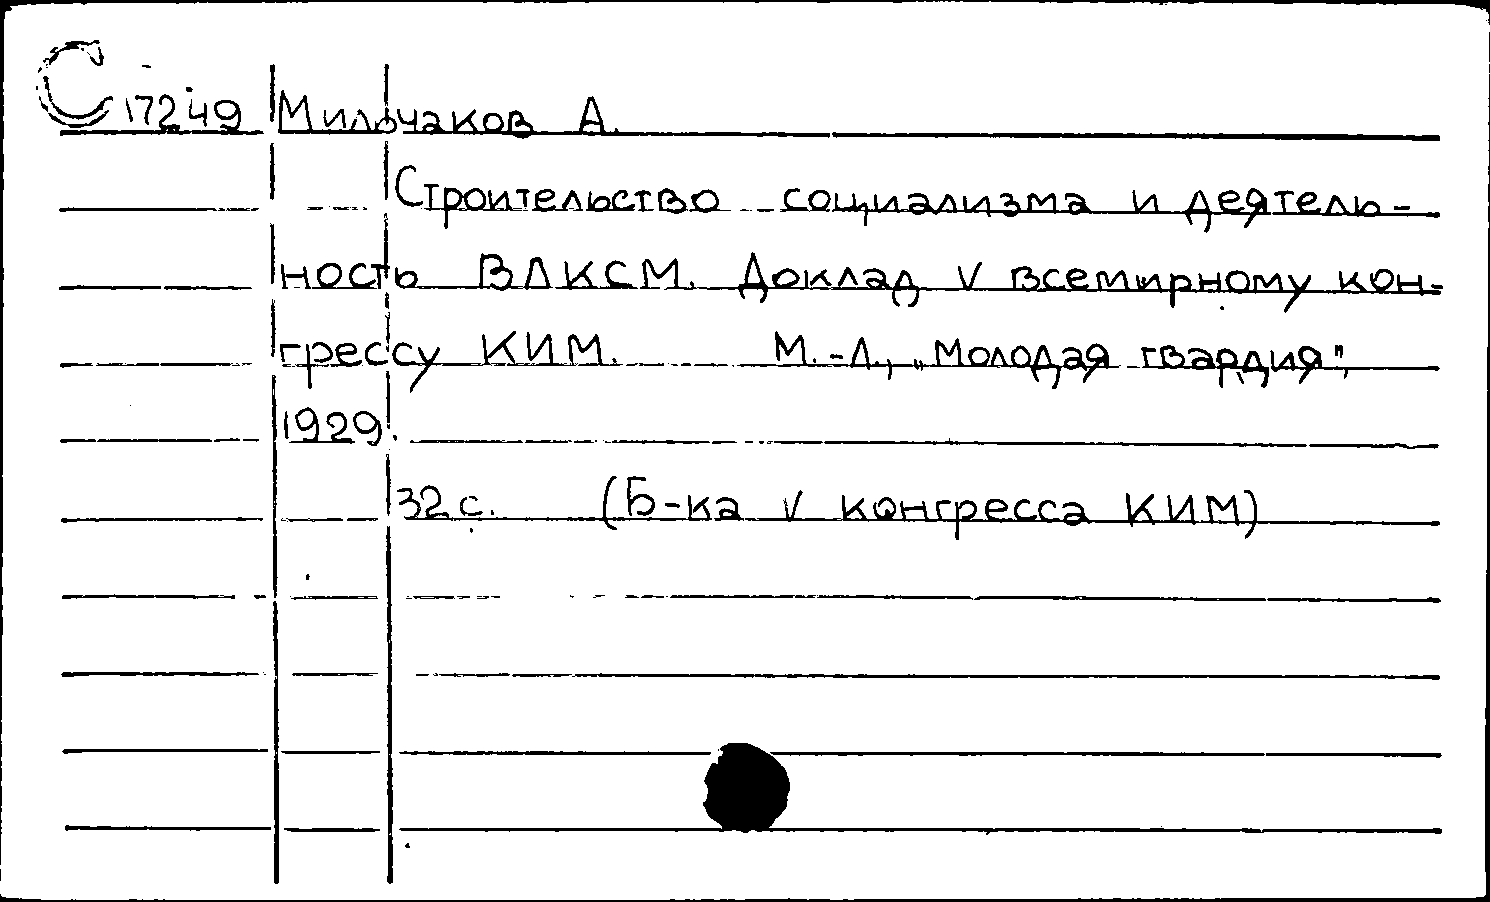 С 17249 Мильчаков А.
Строительство социализма и деятель-
ность ВЛКСМ. Доклад V всемирному кон-
грессу КИМ. М.-Л., „Молодая гвардия",
1929.
32 с. (Б-ка V конгресса КИМ)